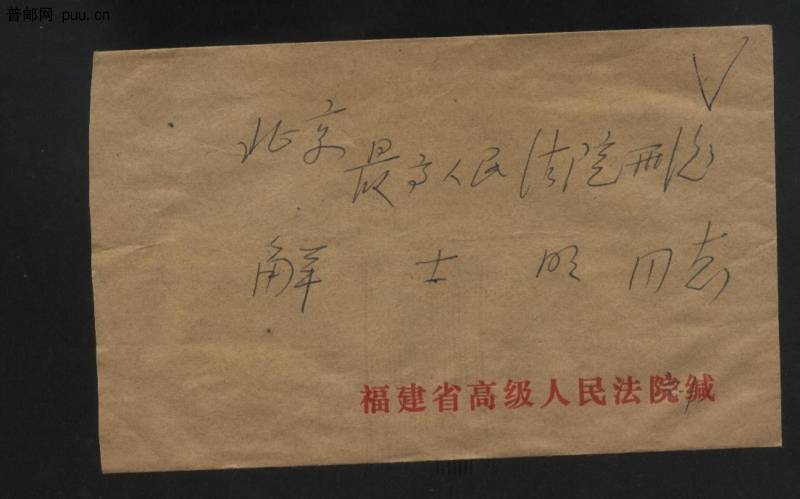 普邮网 puu.cn
北京
最高人民法院刑
解士明同志
福建省高级人民法院缄